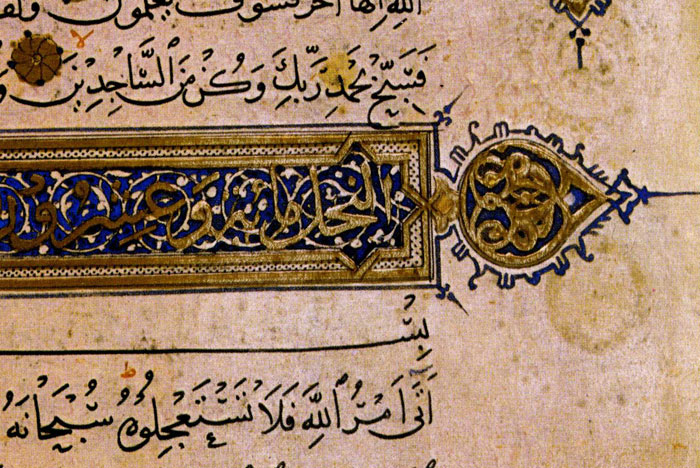 اللَّهِ اِلٰهًا اٰخَرَ فَسَوْفَ يَعْلَمُونَ
فَسَبِّحْ بِحَمْدِ رَبِّكَ وَكُنْ مِنَ السَّاجِدِينَ
النحل مائة وعشرون
بِسْـ
اَتَى اَمْرُ اللَّهِ فَلَا تَسْتَعْجِلُوهُ سُبْحَانَهُ